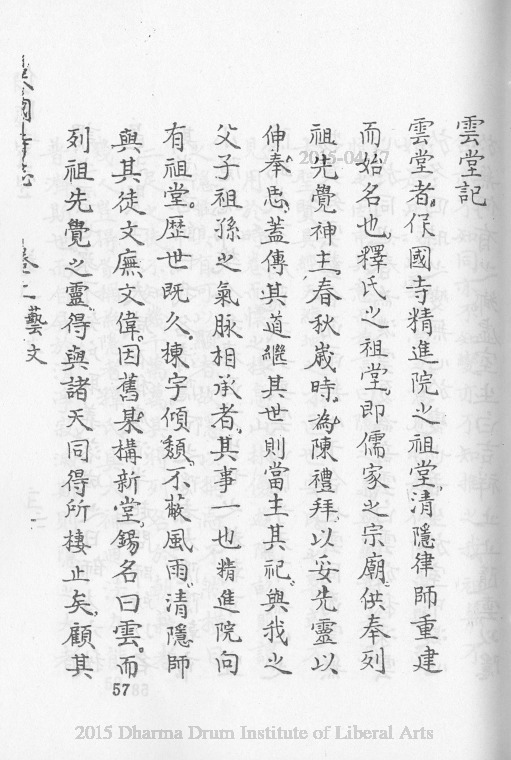 雲堂記
雲堂者。保國寺精進院之祖堂。清隱律師重建
而始名也。釋氏之祖堂。即儒家之宗廟。供奉列
祖先覺神主。春秋歲時。為陳禮拜。以妥先靈。以
伸奉思。蓋傳其道繼其世則當主其祀。與我之
父子祖孫之氣脉相承者。其事一也。精進院向
有祖堂。歷世既久。棟宇傾頹。不蔽風雨。清隱師
與其徒文廡文偉。因舊基構新堂。錫名曰雲。而
列祖先覺之靈。得與諸天同得所棲止矣。顧其
保國寺志 卷二 藝文
57
2015-04-17
2015 Dharma Drum Institute of Liberal Arts